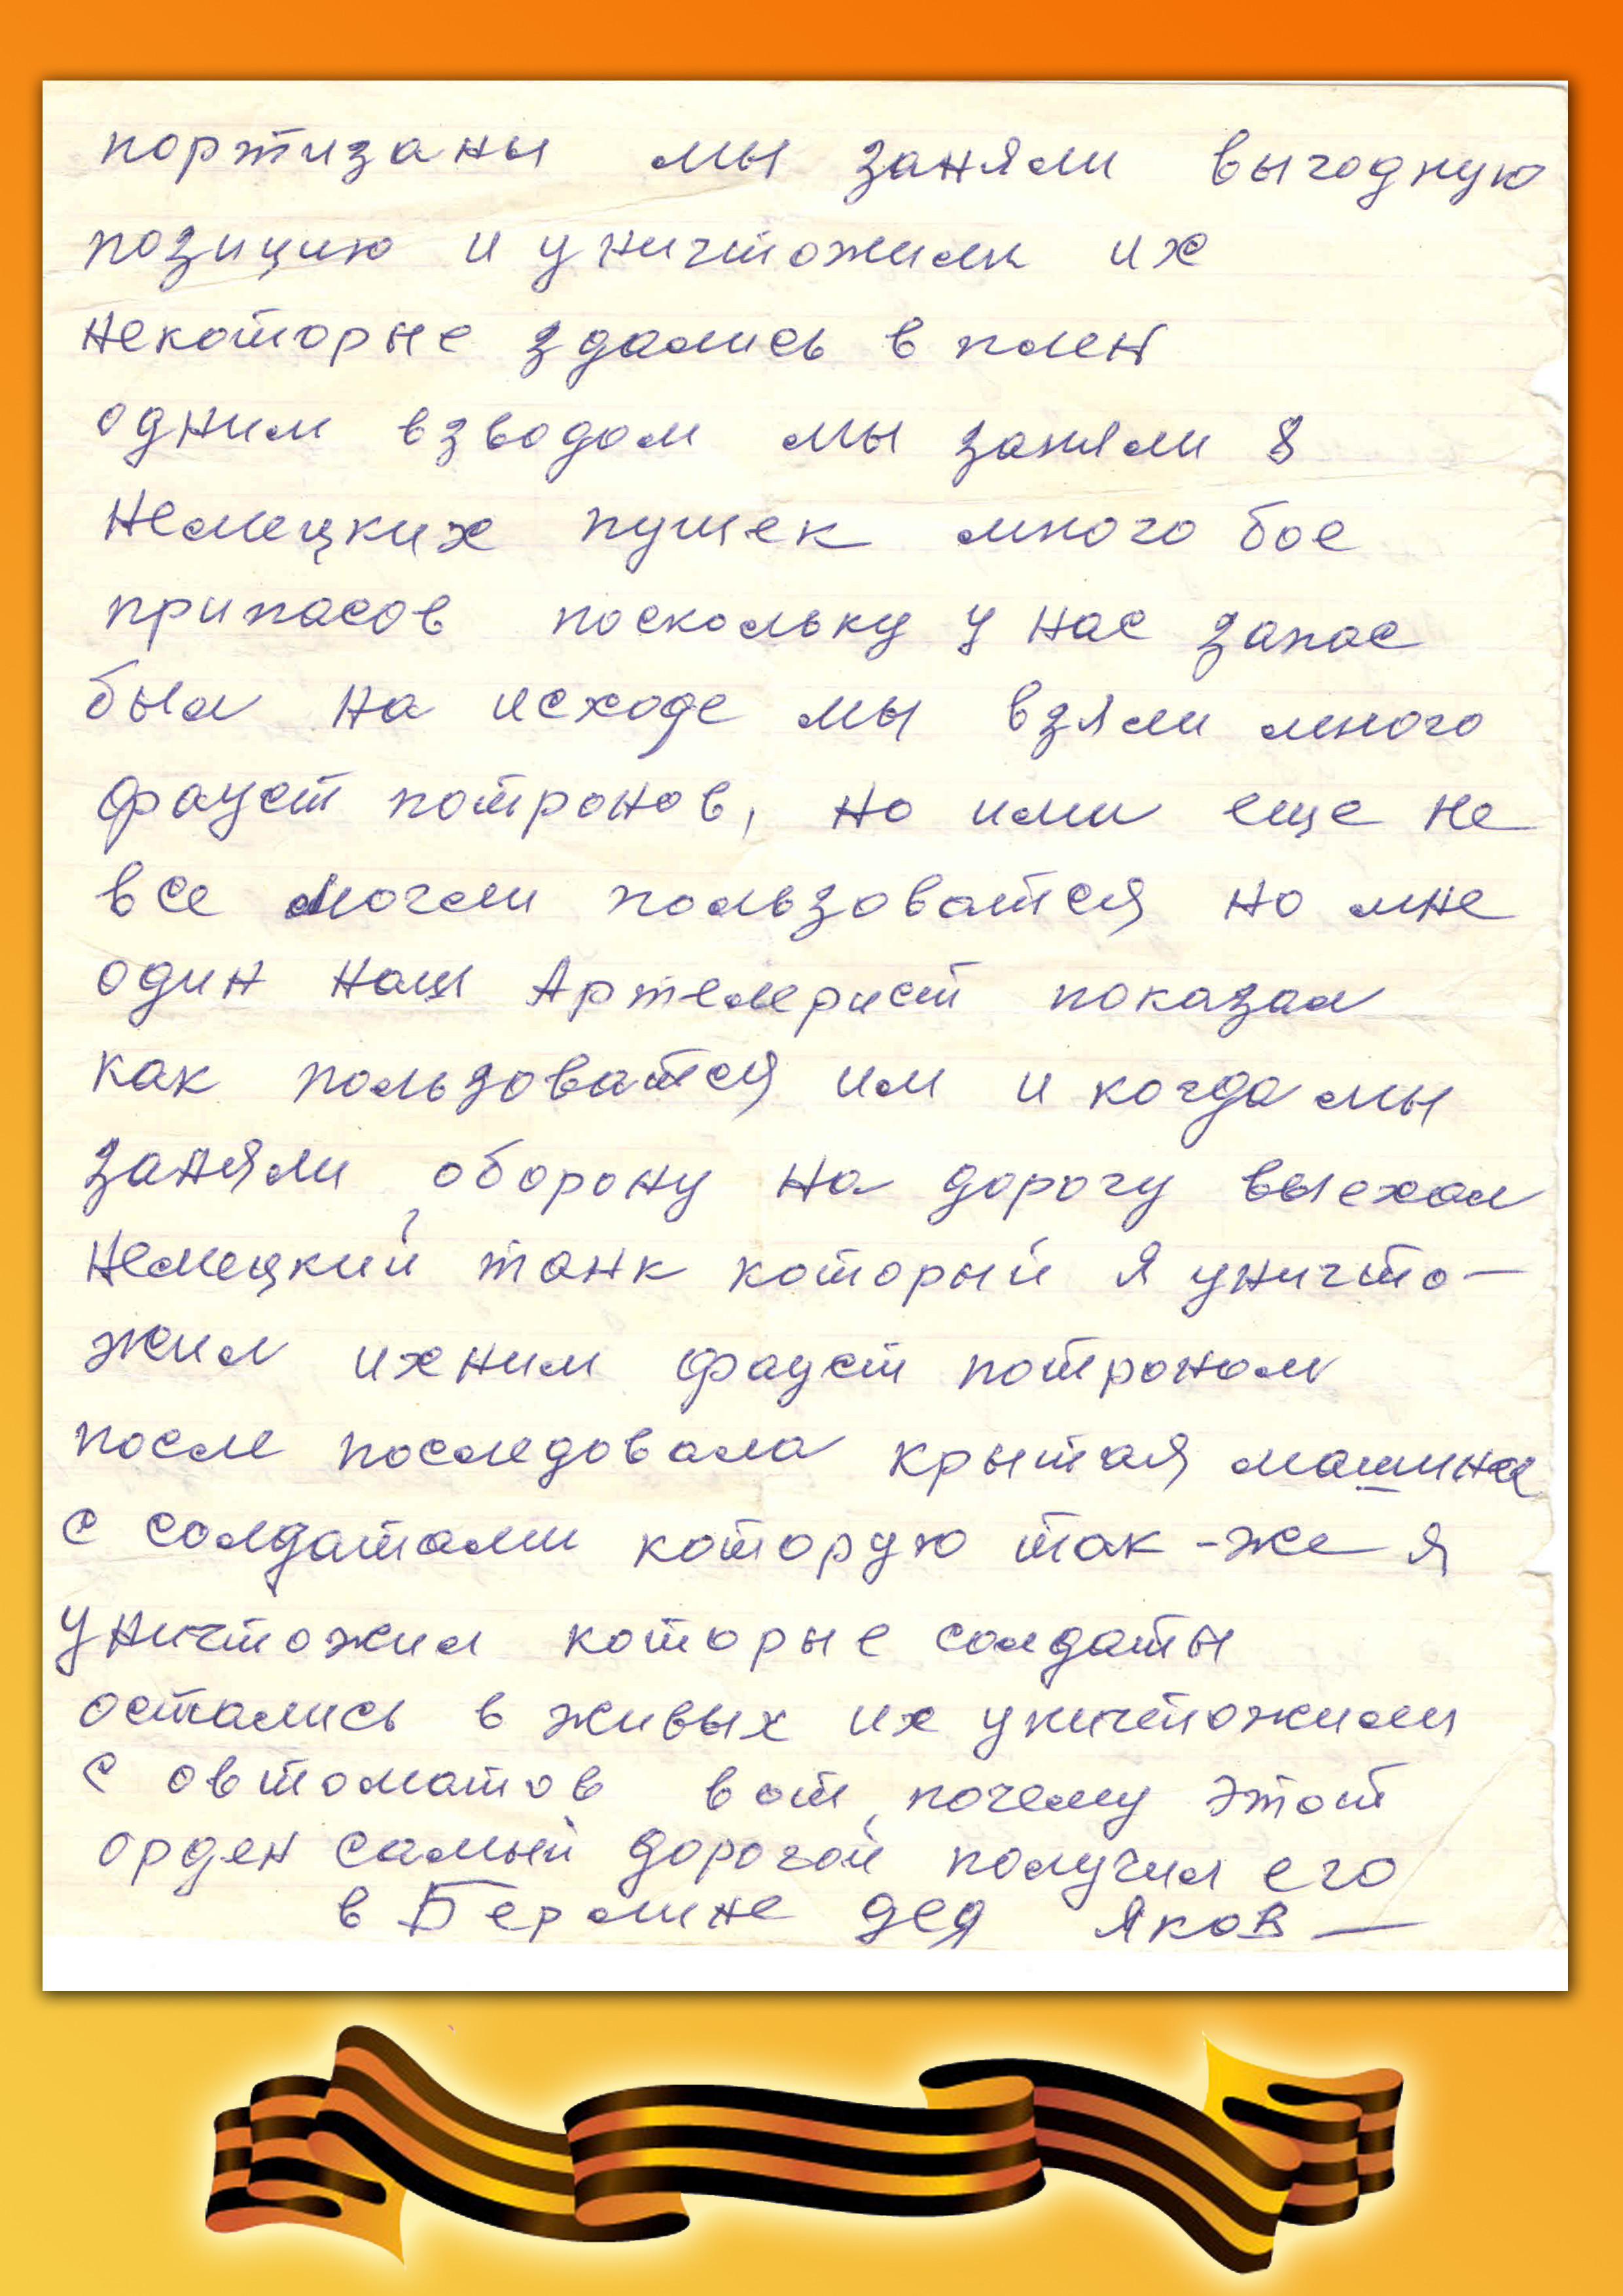 портизаны мы заняли выгодную
позицию и уничтожили их
некоторые здались в плен
одним взводом мы заняли 8
немецких пушек много бое
припасов поскольку у нас запас
был на исходе мы взяли много
фауст потронов, но ими еще не
все могли пользоватся но мне
один наш Артелерист показал
как пользоватся им и когда мы
заняли оборону на дорогу выехал
немецкий танк который я уничто-
жил ихним фауст потроном
после последовала крытая машина
с солдатами которую так-же я
уничтожил которые солдаты
остались в живых их уничтожили
с овтоматов вот почему этот
орден самый дорогой получил его
в Берлине дед Яков